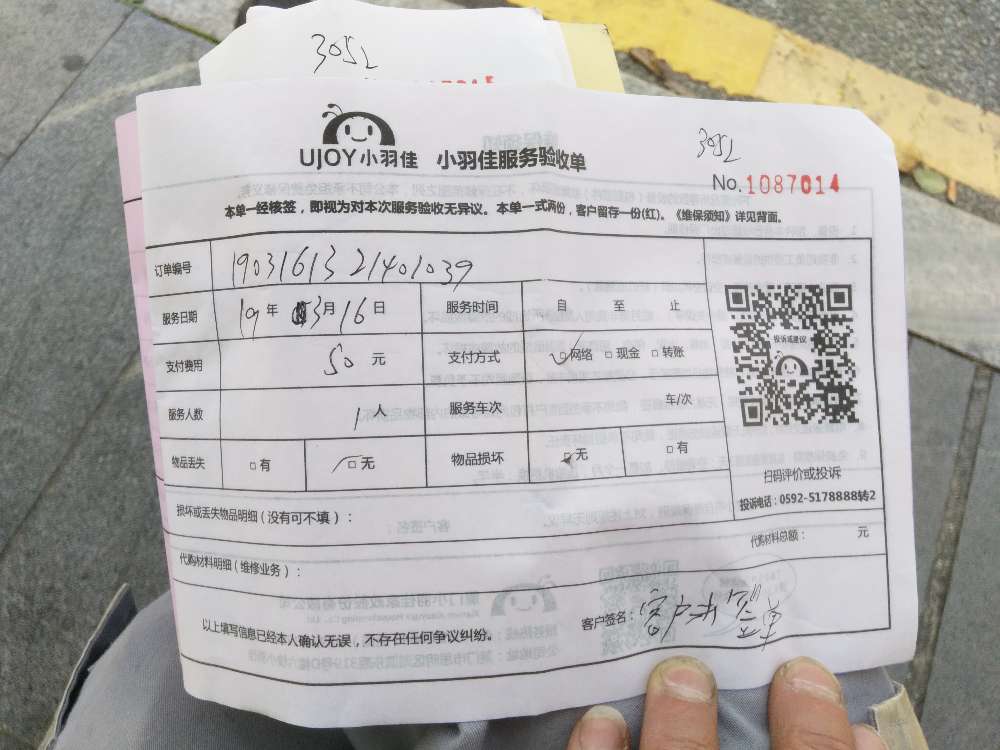 3052
UJOY小羽佳 小羽佳服务验收单
3052
No.1087014
本单一经核签，即视为对本次服务验收无异议。本单一式两份，客户留存一份(红)。《维保须知》详见背面。
订单编号 1903161321401039
服务日期 19年 3月16日 服务时间 自 至 止
支付费用 50 元 支付方式 ☑网络 □现金 □转账
服务人数 1人 服务车次 车/次
物品丢失 □有 ☑无 物品损坏 ☑无 □有
投诉或建议
扫码评价或投诉
投诉电话：0592-5178888转2
损坏或丢失物品明细（没有可不填）：
代购材料明细（维修业务）： 代购材料总额： 元
以上填写信息已经本人确认无误，不存在任何争议纠纷。 客户签名：客户未签单